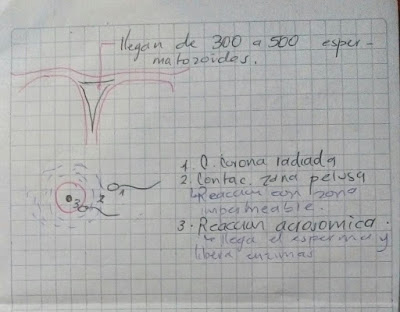 llegan de 300 a 500 esper-
matozoides.
1. C. Corona radiada
2. Contac. zona pelusa
↳Reaccion con zona
impermeable.
3. Reaccion acrosomica.
↳llega el esperma y
libera enzimas
1
2
3